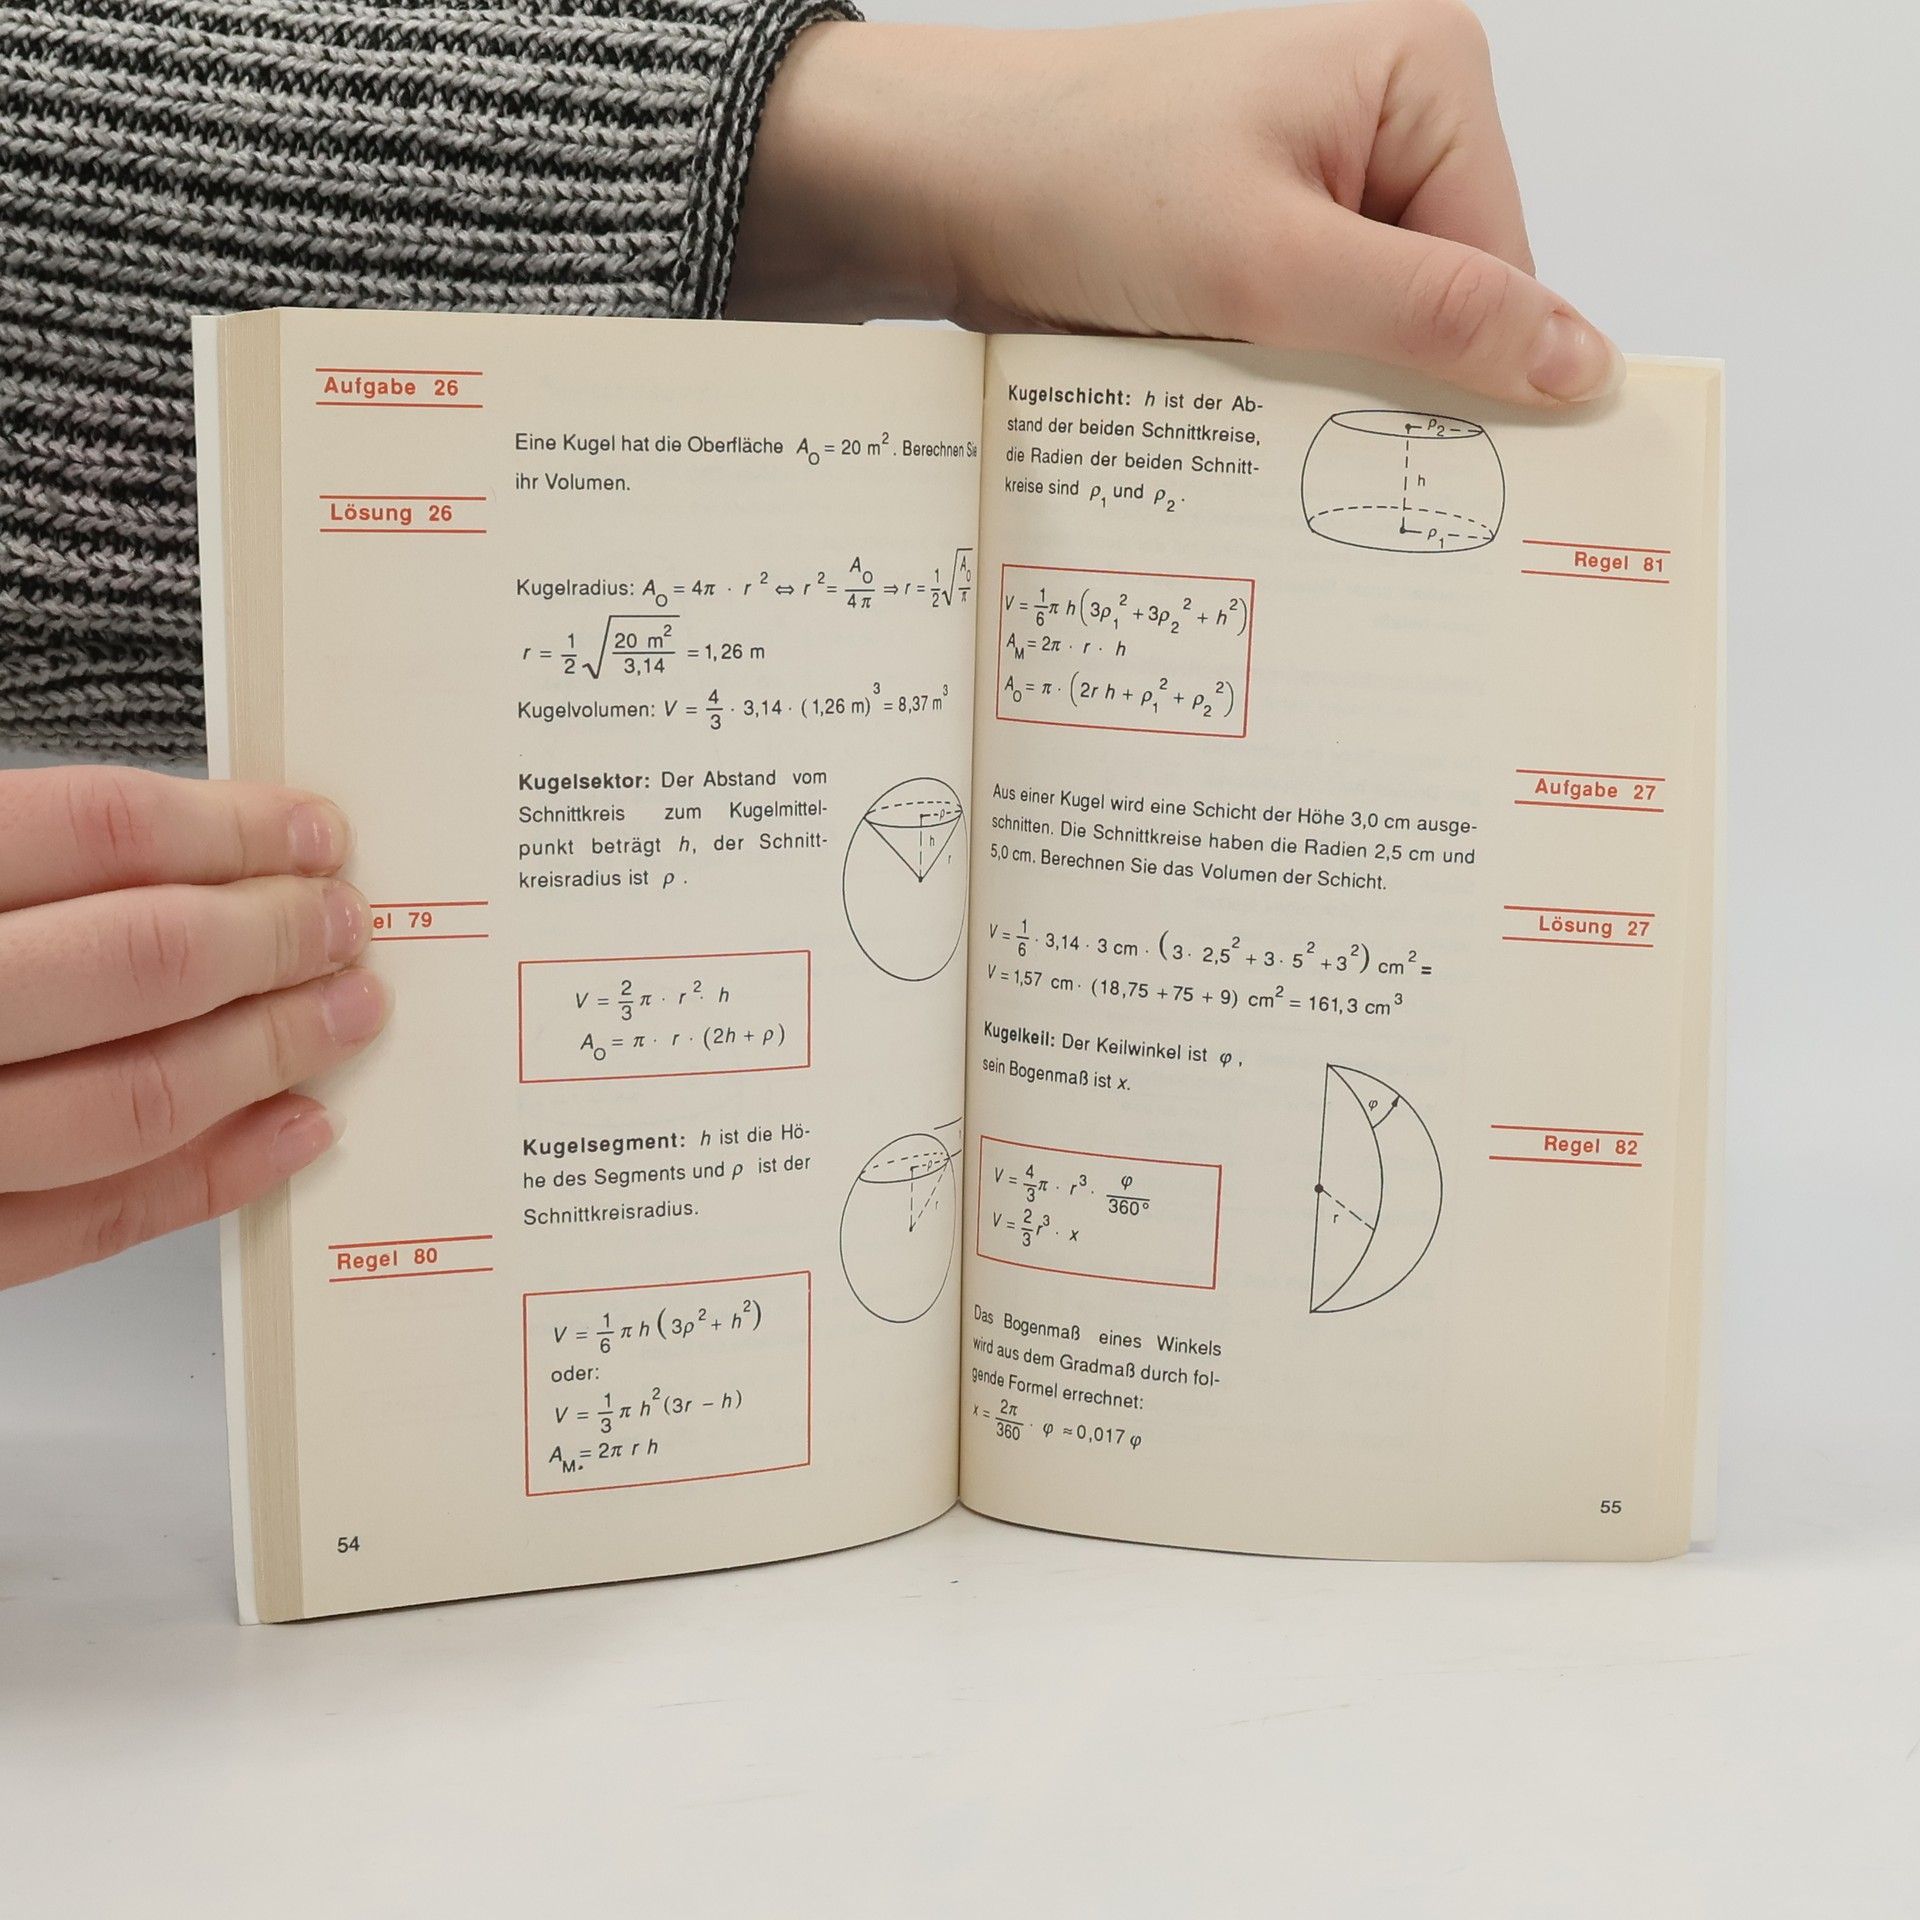 Aufgabe 26
Eine Kugel hat die Oberfläche A_O = 20 m². Berechnen Sie
ihr Volumen.
Lösung 26
Kugelradius: A_O = 4π · r² ⇔ r² = A_O/4π ⇒ r = 1/2 √(A_O/π)
r = 1/2 √(20 m²/3,14) = 1,26 m
Kugelvolumen: V = 4/3 · 3,14 · (1,26 m)³ = 8,37 m³
Kugelsektor: Der Abstand vom
Schnittkreis zum Kugelmittel-
punkt beträgt h, der Schnitt-
kreisradius ist ρ.
ρ
h
r
el 79
V = 2/3 π · r² · h
A_O = π · r · (2h + ρ)
Kugelsegment: h ist die Hö-
he des Segments und ρ ist der
Schnittkreisradius.
ρ
r
Regel 80
V = 1/6 π h (3ρ² + h²)
oder:
V = 1/3 π h² (3r − h)
A_M = 2π r h
54
Kugelschicht: h ist der Ab-
stand der beiden Schnittkreise,
die Radien der beiden Schnitt-
kreise sind ρ₁ und ρ₂.
ρ₂
h
ρ₁
Regel 81
V = 1/6 π h (3ρ₁² + 3ρ₂² + h²)
A_M = 2π · r · h
A_O = π · (2r h + ρ₁² + ρ₂²)
Aufgabe 27
Aus einer Kugel wird eine Schicht der Höhe 3,0 cm ausge-
schnitten. Die Schnittkreise haben die Radien 2,5 cm und
5,0 cm. Berechnen Sie das Volumen der Schicht.
Lösung 27
V = 1/6 · 3,14 · 3 cm · (3 · 2,5² + 3 · 5² + 3²) cm² =
V = 1,57 cm · (18,75 + 75 + 9) cm² = 161,3 cm³
Kugelkeil: Der Keilwinkel ist φ,
sein Bogenmaß ist x.
φ
r
Regel 82
V = 4/3 π · r³ · φ/360°
V = 2/3 r³ · x
Das Bogenmaß eines Winkels
wird aus dem Gradmaß durch fol-
gende Formel errechnet:
x = 2π/360 · φ ≈ 0,017 φ
55